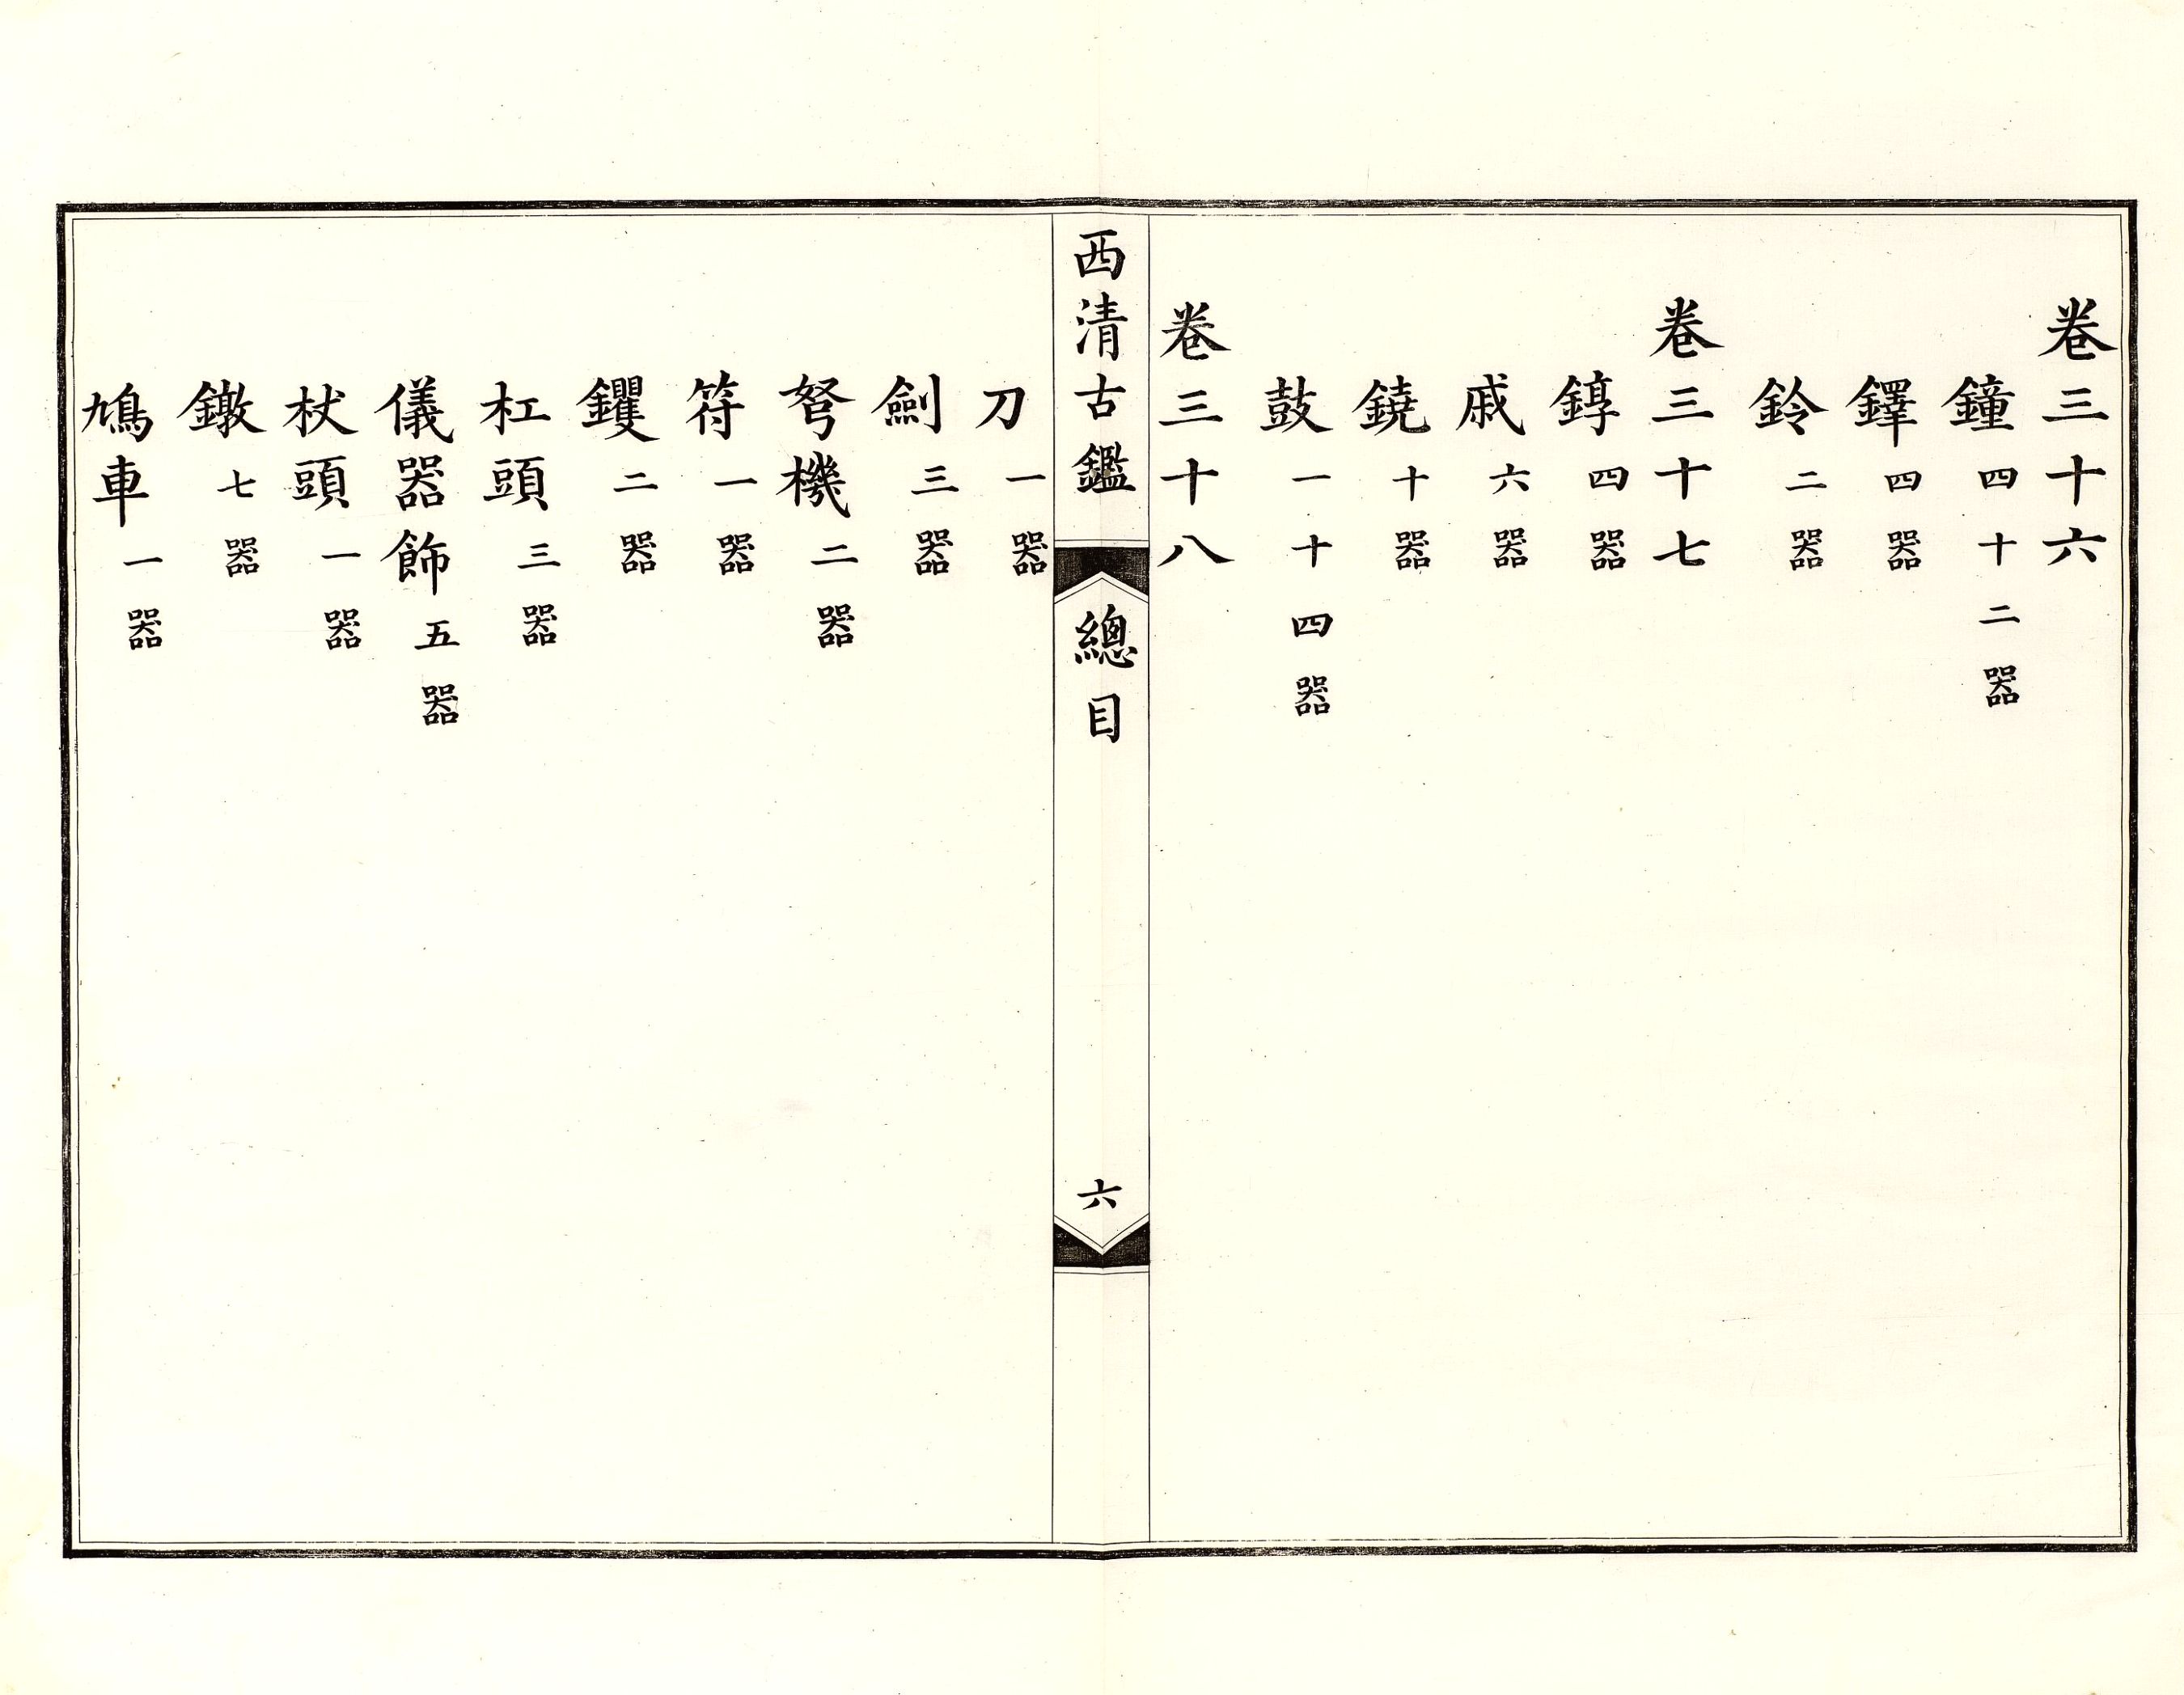 卷三十六
鐘四十二器
鐸四器
鈴二器
卷三十七
錞四器
戚六器
鐃十器
鼓一十四器
卷三十八
西清古鑑
總目
六
刀一器
劍三器
弩機二器
符一器
钁二器
杠頭三器
儀器飾五器
杖頭一器
鐓七器
鳩車一器